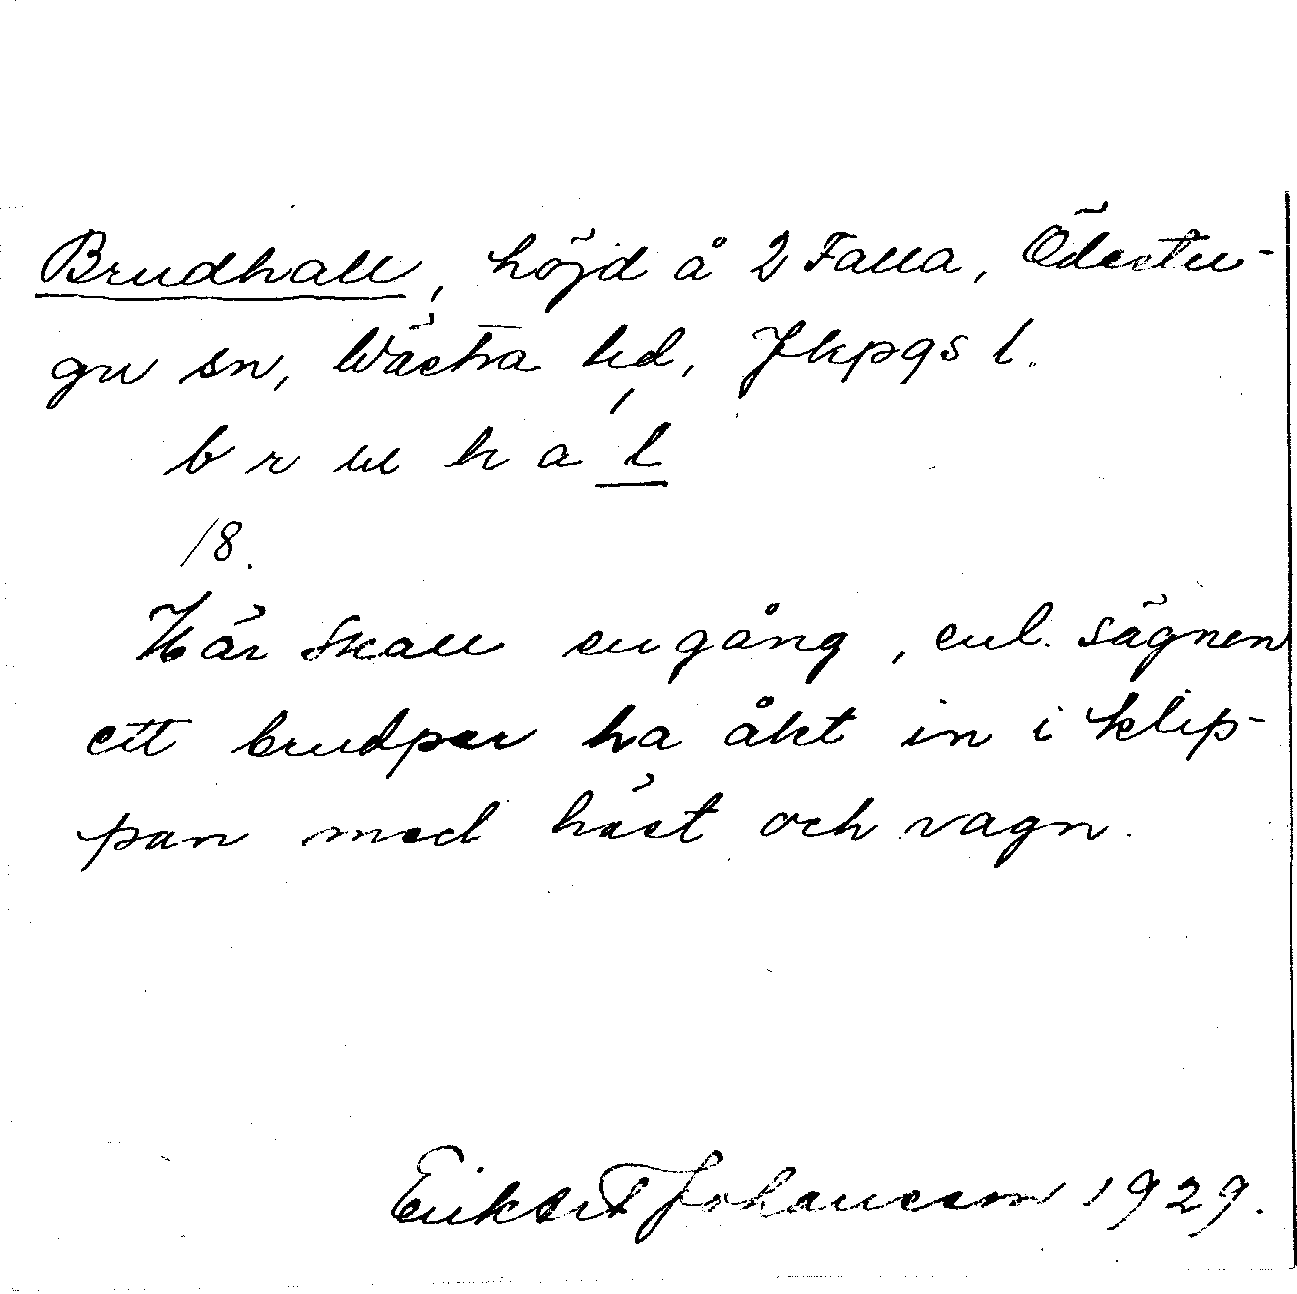 Brudhall, höjd å 2 Falla, Ödestu-
gu sn, Västra hd, Jkpgs l.
b r u h a ĺ
18.
Här skall en gång, enl. sägnen
ett brudpar ha åkt in i klip-
pan med häst och vagn.
Johansson 1929.